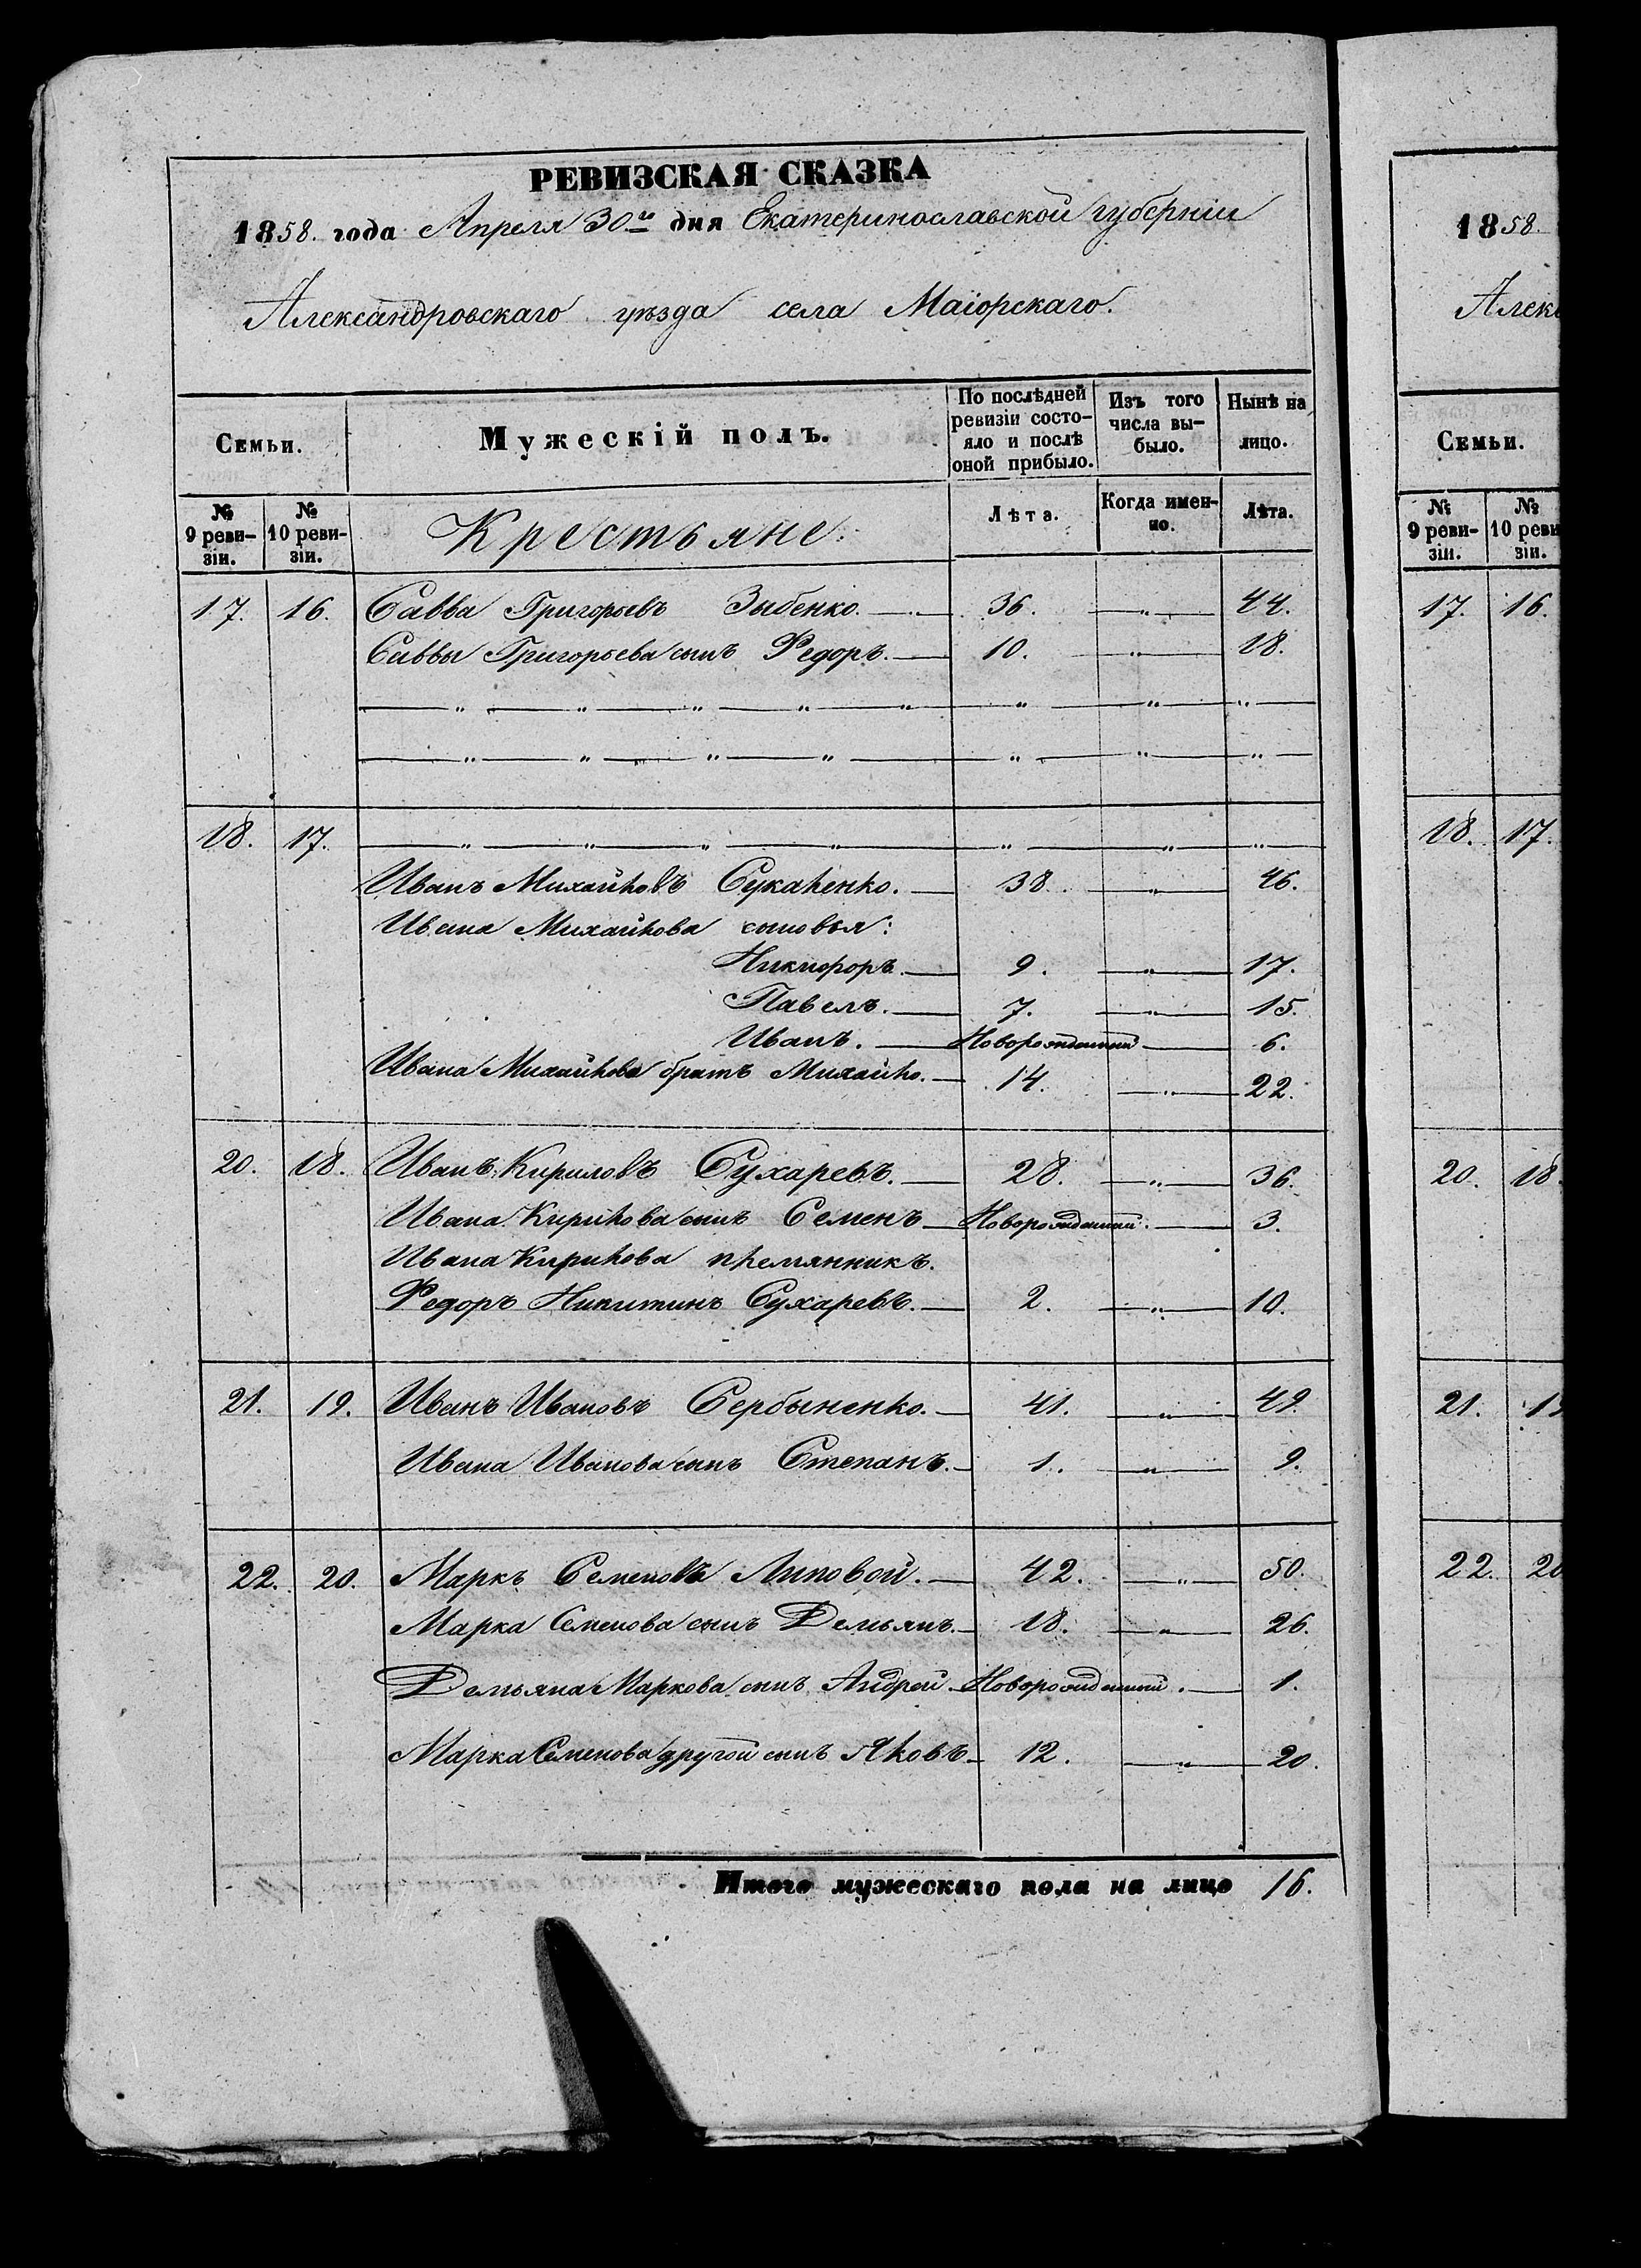 РЕВИЗСКАЯ СКАЗКА
1858. года Апреля 30го дня Екатеринославской губернии
Александровскаго уѣзда села Маіорскаго.
Семьи.
Мужескій полъ.
По послѣдней ревизіи состо-яло и послѣ оной прибыло.
Изъ того числа вы-было.
Нынѣ на лицо.
№ 9 реви-зіи.
№ 10 реви-зіи.
Крестьяне.
Лѣта.
Когда имен-но.
Лѣта.
17. 16. Савва Григорьевъ Зыбенко. — 36. — „ — 44.
Саввы Григорьева сынъ Федоръ. — 10. — „ — 18.
— „ — „ — „ — „ — „ — „ — „ — „ —
— „ — „ — „ — „ — „ — „ — „ —
18. 17. — „ — „ — „ — „ — „ — „ — „ —
Иванъ Михайловъ Сукаленко. — 38. — „ — 46.
Ивана Михайлова сыновья:
Никифоръ. — 9. — „ — 17.
Павелъ. — 7. — „ — 15.
Иванъ. — Новорожденный — 6.
Ивана Михайлова братъ Михайло. — 14. — „ — 22.
20. 18. Иванъ Кириловъ Сухаревъ. — 28. — „ — 36.
Ивана Кирилова сынъ Семенъ — Новорожденный. — 3.
Ивана Кирилова племянникъ.
Федоръ Никитинъ Сухаревъ. — 2. — „ — 10.
21. 19. Иванъ Ивановъ Сербыненко. — 41. — „ — 49.
Ивана Иванова сынъ Степанъ. — 1. — „ — 9.
22. 20. Маркъ Семеновъ Липовой. — 42. — „ — 50.
Марка Семенова сынъ Демьянъ. — 18. — „ — 26.
Демьяна Маркова сынъ Андрей — Новорожденный. — 1.
Марка Семенова другой сынъ Яковъ — 12. — „ — 20.
Итого мужескаго пола на лицо 16.
1858.
Алек
Семьи.
№ 9 реви-зіи.
№ 10 реви зіи.
17. 16.
18. 17.
20. 18.
21. 1
22. 20